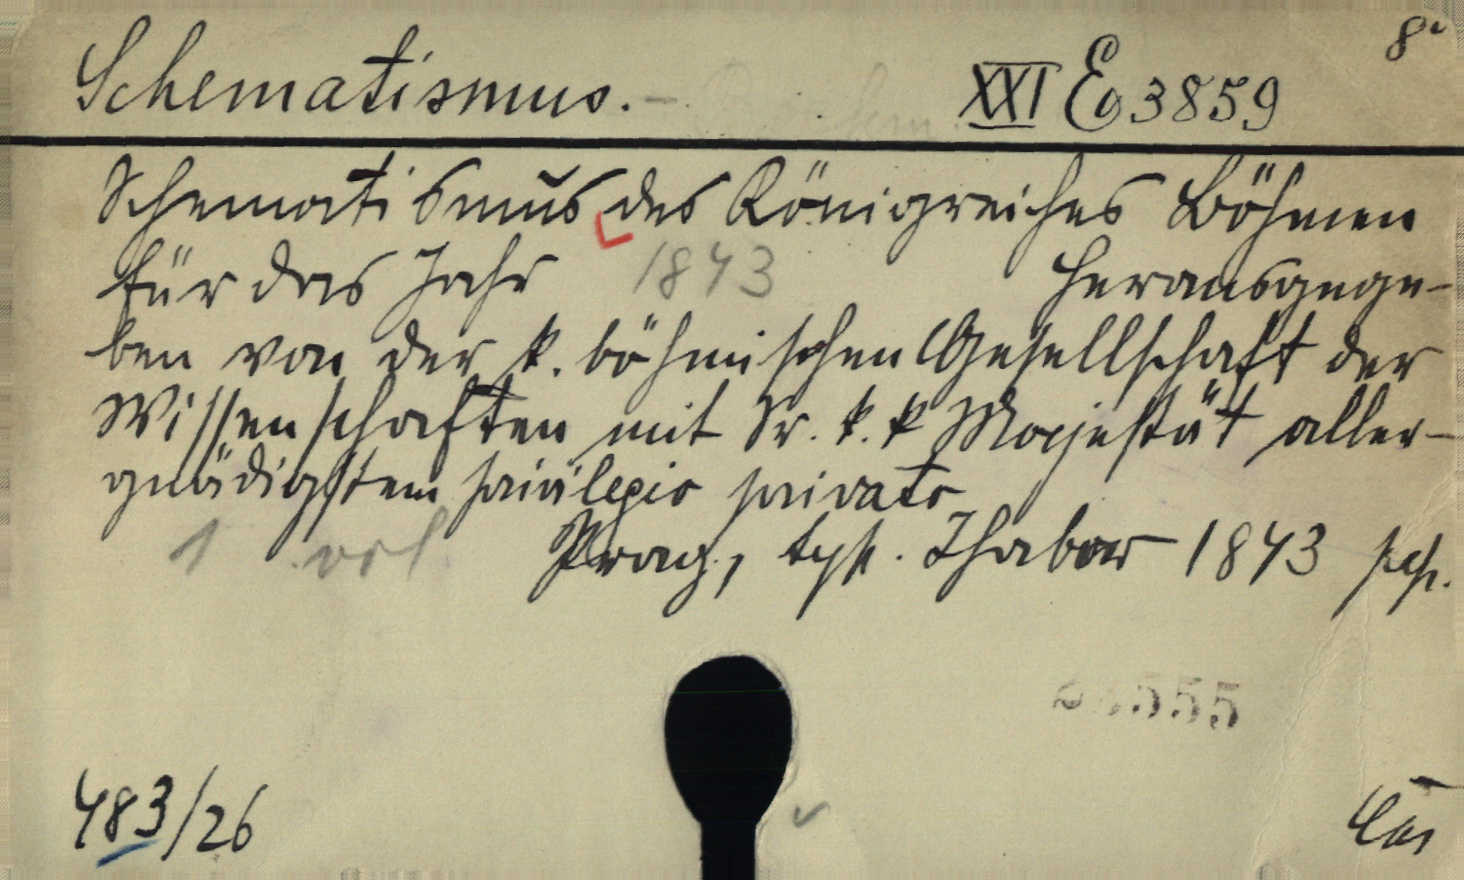 8°
Schematismus. XXI E 3859
Schematismus des Königreiches Böhmen
für das Jahr 1843 herausgege-
ben von der k. böhmischen Gesellschaft der
Wissenschaften mit Sr. k. k Majestät aller-
gnädigstem privilegio privato
1 vol. Prag, typ. Thabor 1843 pap.
555
483/26